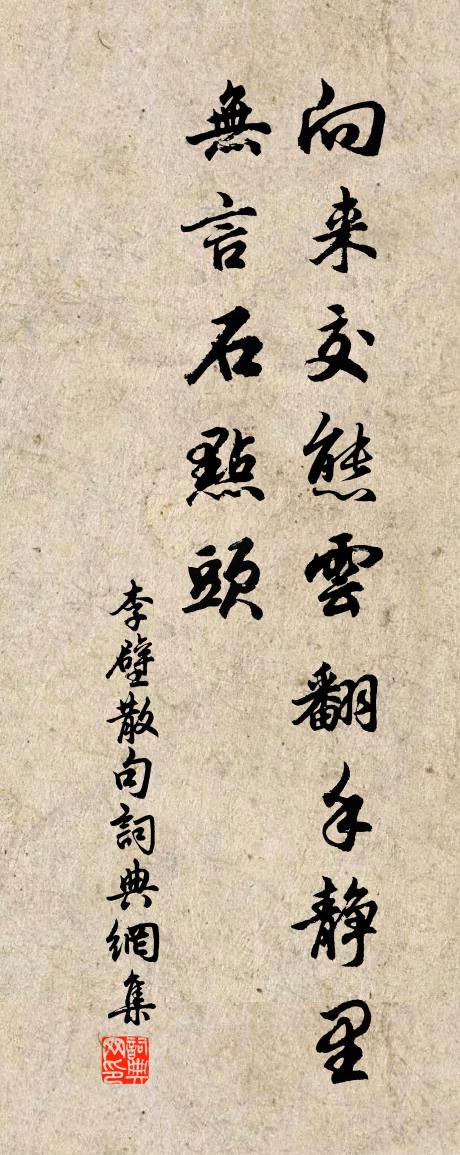 向来交態雲翻手静里
無言石點頭
李壁散句詞典網集
詞典网印